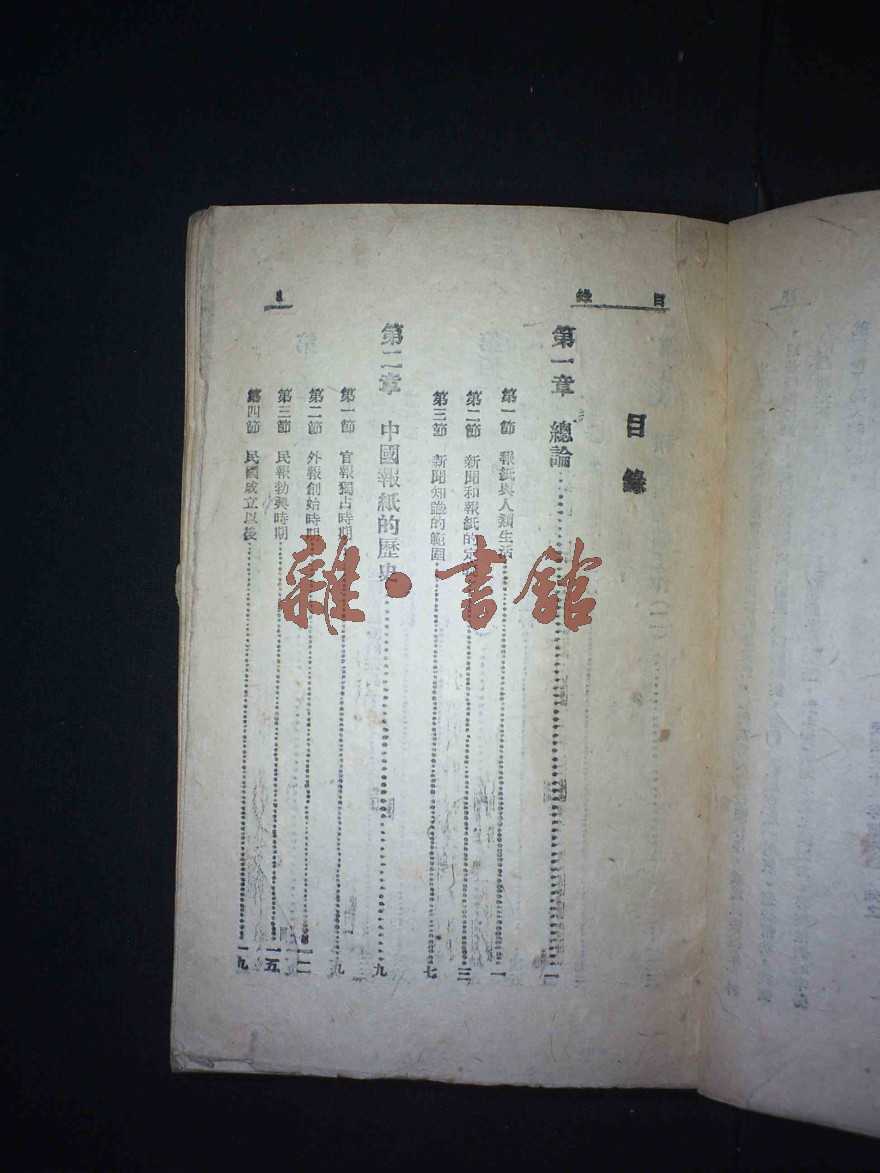 目錄
1
目錄
第一章 總論……一
第一節 報紙與人類生活……一
第二節 新聞和報紙的定……三
第三節 新聞知識的範圍……七
第二章 中國報紙的歷史……九
第一節 官報獨占時期……九
第二節 外報創始時期……一二
第三節 民報勃興時期……一五
第四節 民國成立以後……一九
雜·書館